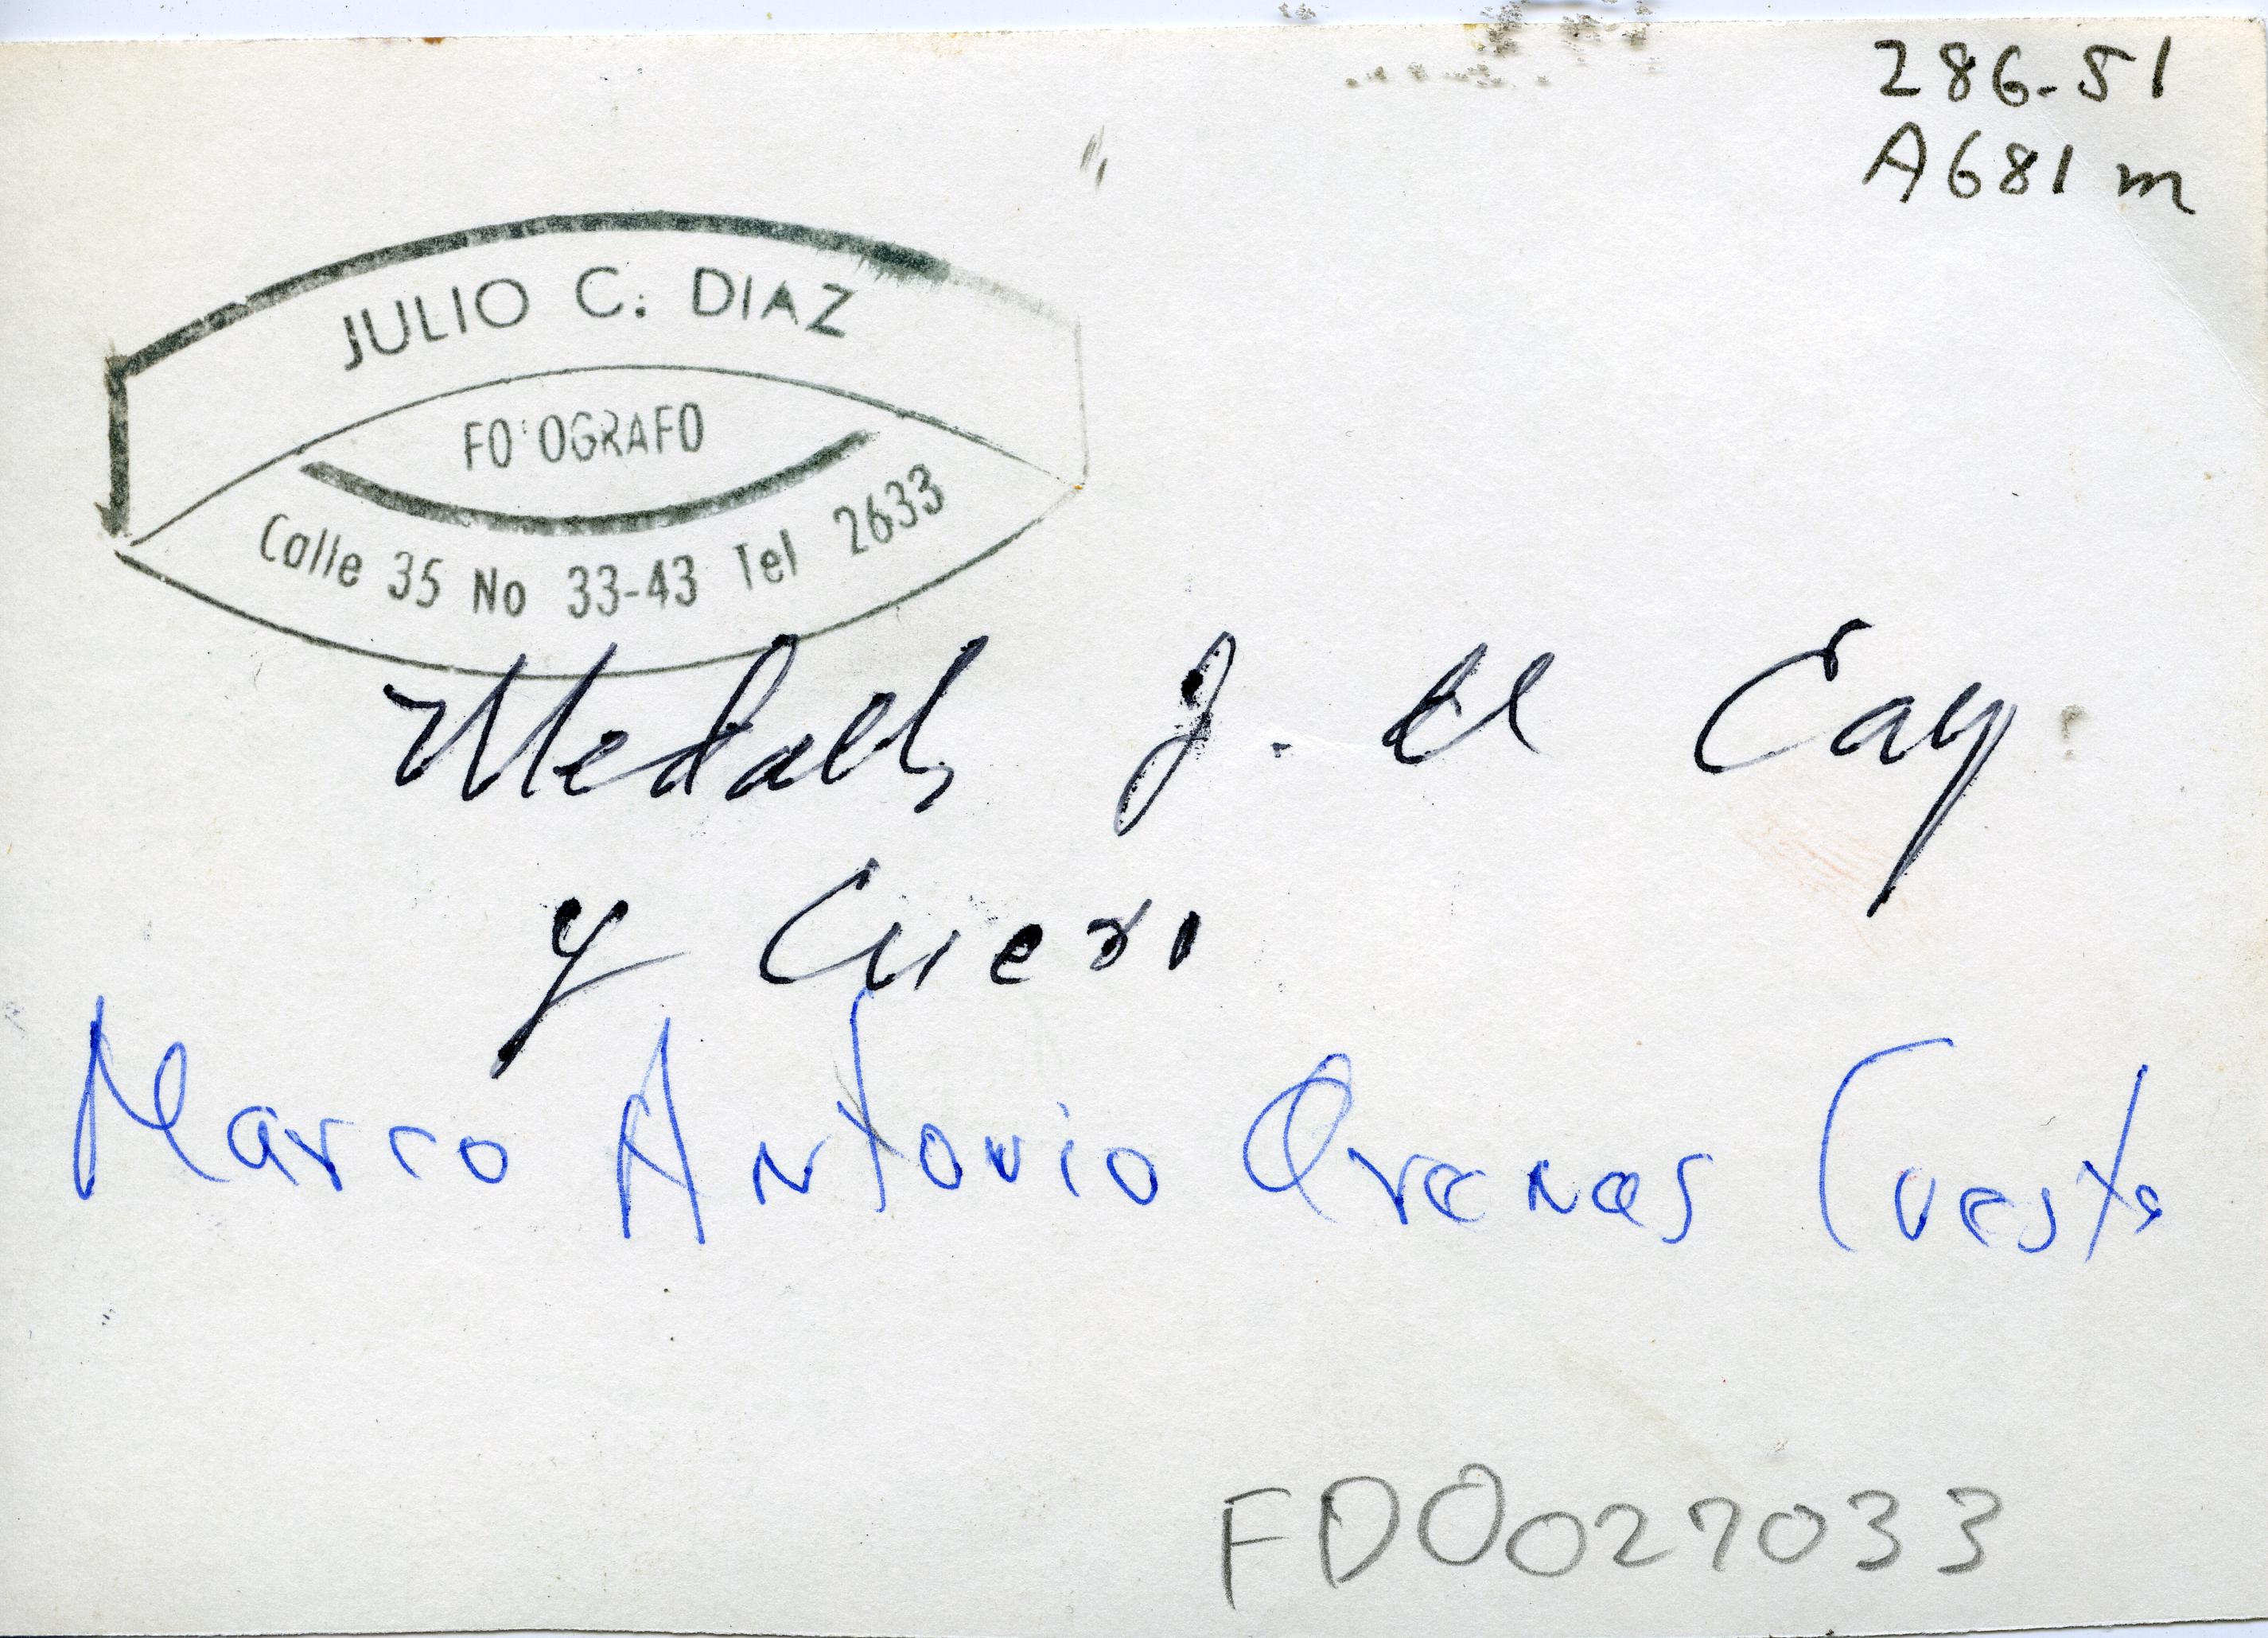 286-51
A681 m
JULIO C. DIAZ
FO OGRAFO
Calle 35 No 33-43 Tel 2633
J. el
y Cuero
Marco Antonio Arenas Cuesta
FD0027033